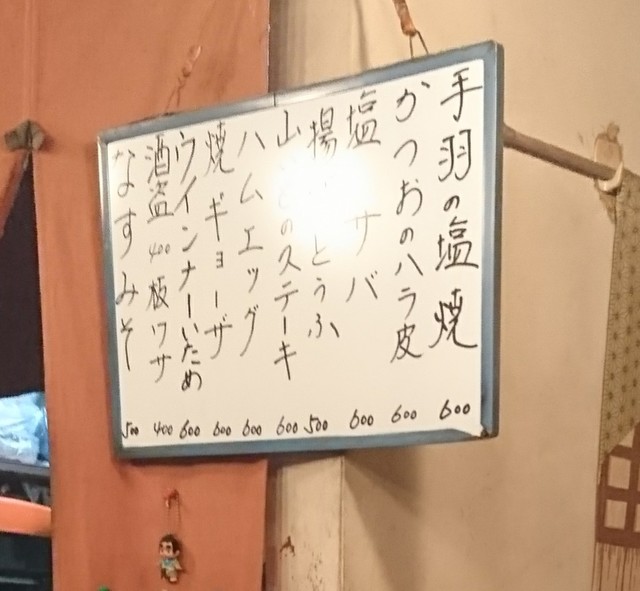 手羽の塩焼 600
かつおのハラ皮 600
塩サバ 600
揚 とうふ 500
山 のステーキ 600
ハムエッグ 600
焼ギョーザ 600
ウインナーいため 600
酒盗 400 板ワサ 400
なすみそ 500